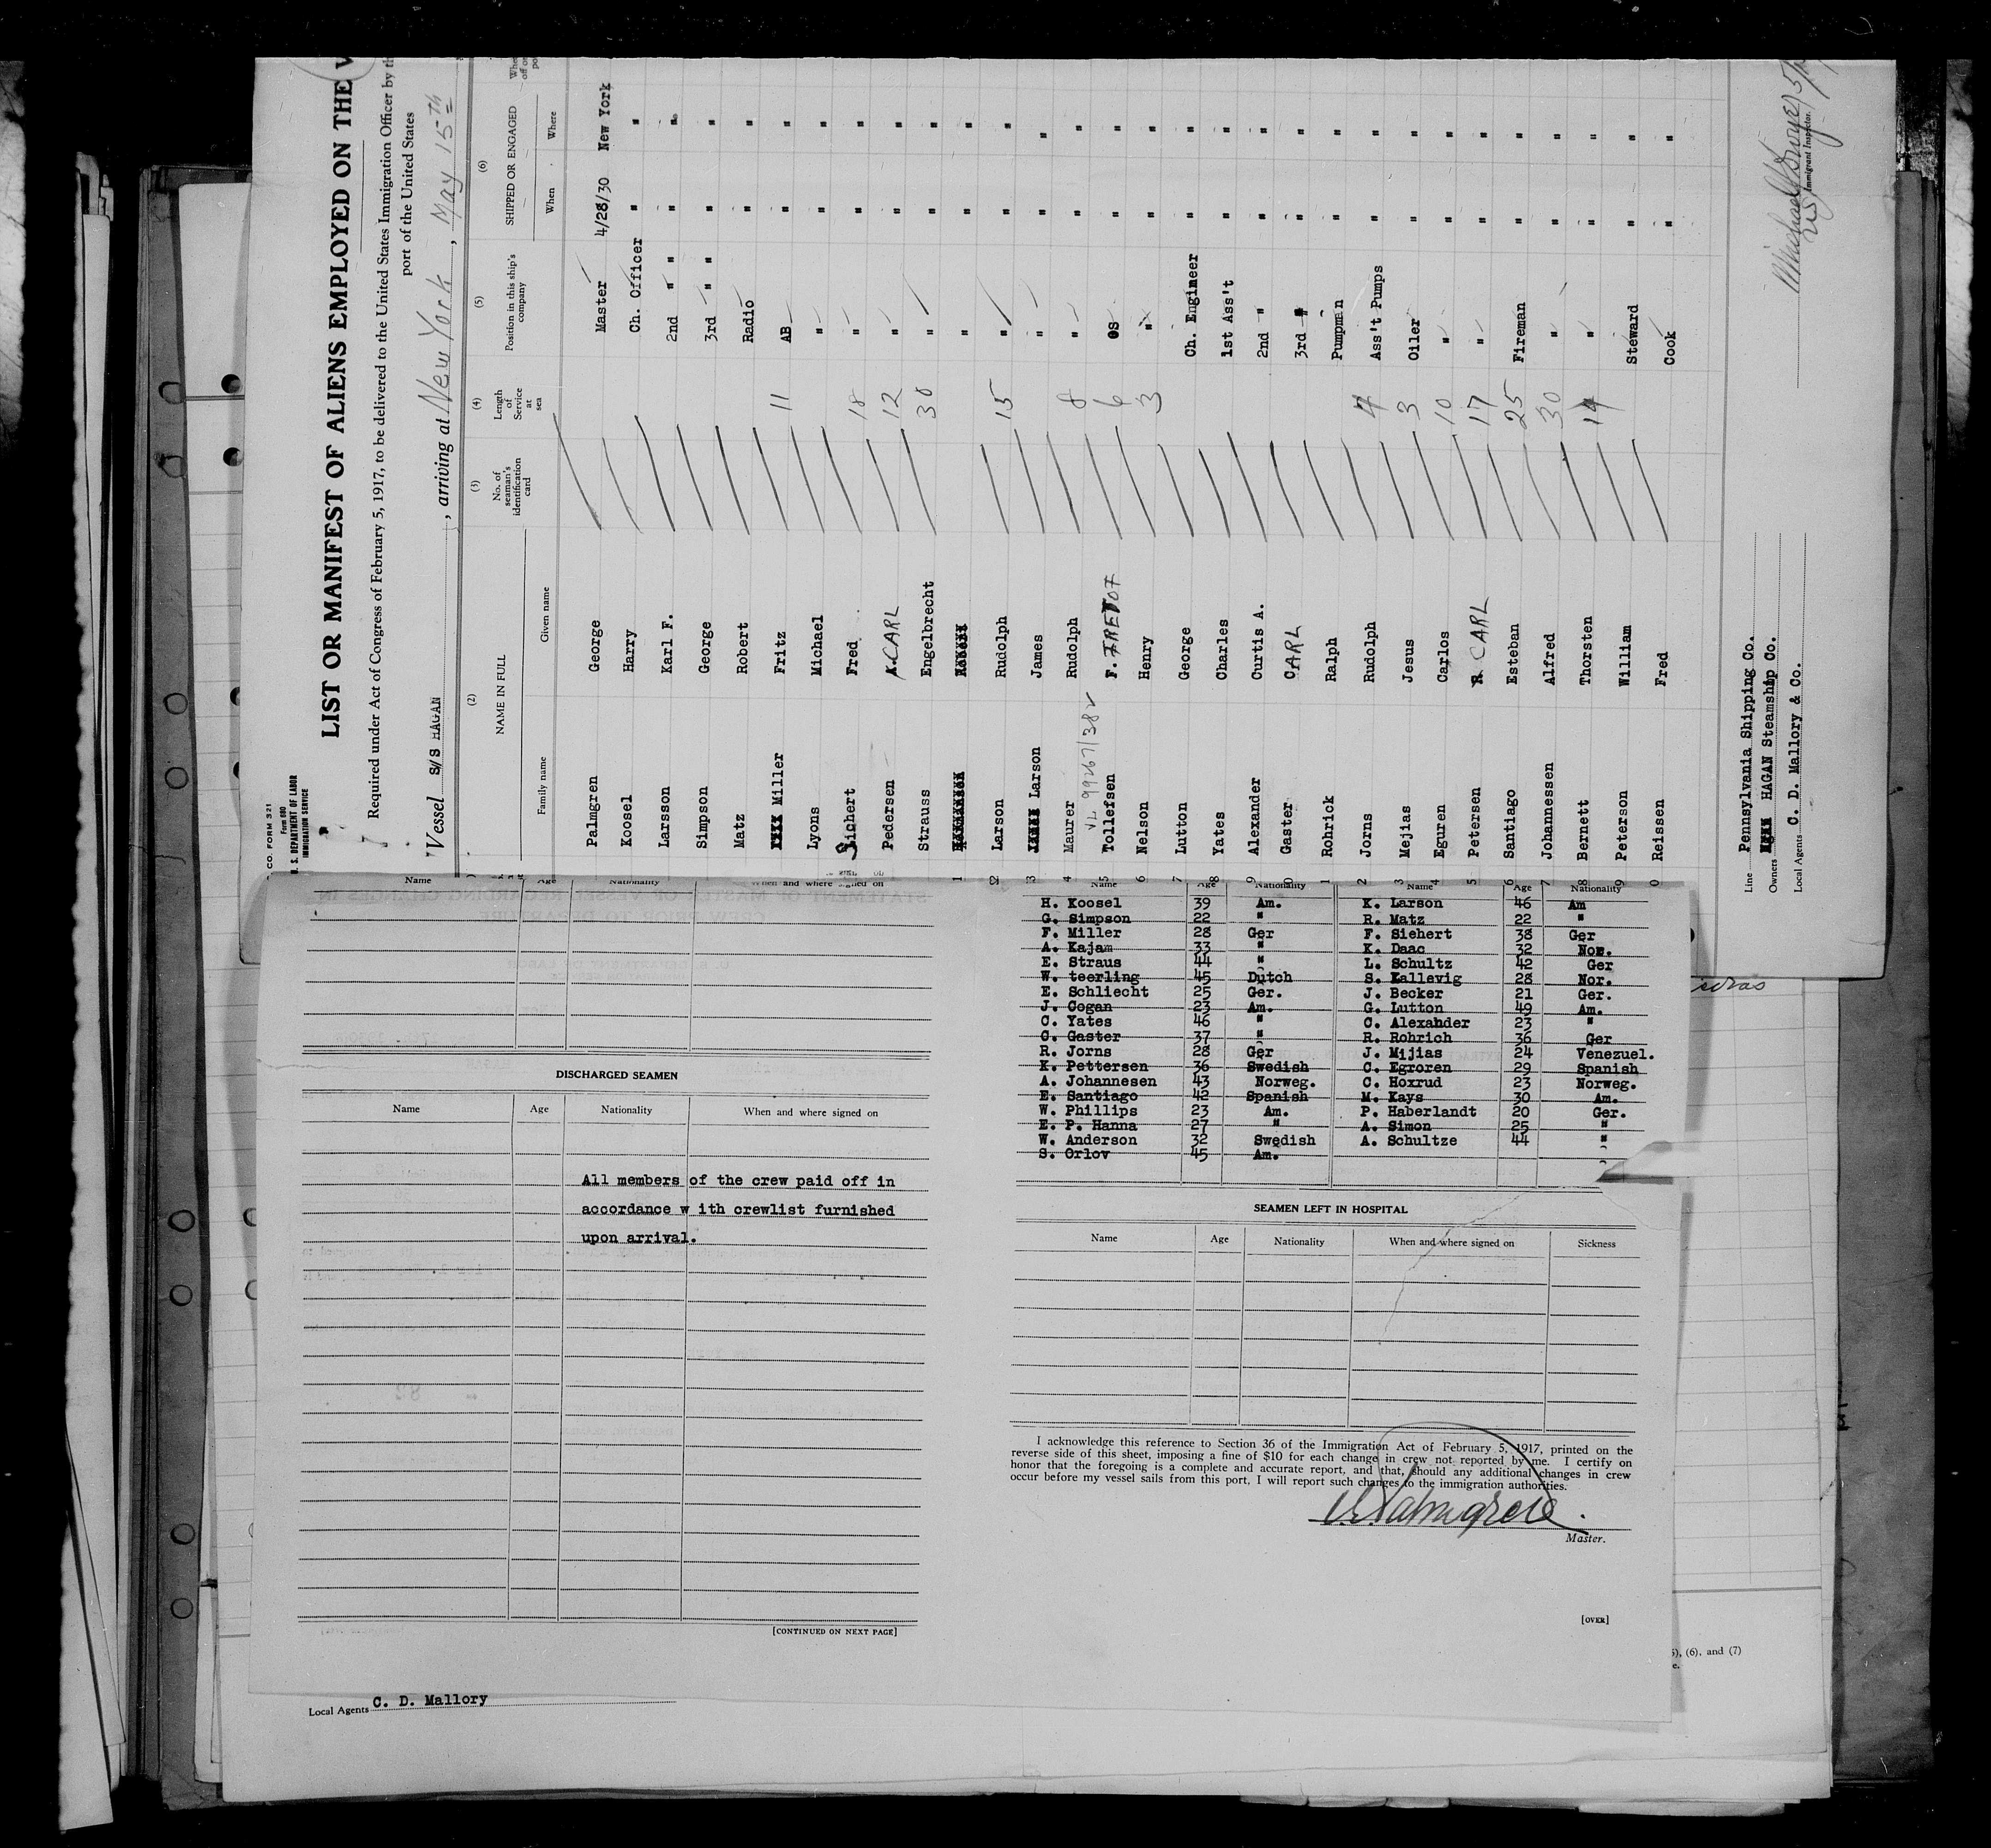 CO. FORM 321
Form 680
U. S. DEPARTMENT OF LABOR
IMMIGRATION SERVICE
LIST OR MANIFEST OF ALIENS EMPLOYED ON THE V
Required under Act of Congress of February 5, 1917, to be delivered to the United States Immigration Officer by th
port of the United States
Vessel S/S HAGAN , arriving at New York , May 15th
(2) (3) (4) (5) (6)
NAME IN FULL No. of seaman's identification card Length of Service at sea Position in this ship's company SHIPPED OR ENGAGED
Family name Given name When Where
Palmgren George Master 4/28/30 New York
Koosel Harry Ch. Officer " "
Larsson Karl F. 2nd " " " "
Simpson George 3rd " " " "
Matz Robert Radio " "
Miller Fritz 11 AB " "
Lyons Michael " " "
Sichert Fred 18 " " "
Pedersen CARL 12 " " "
Strauss Engelbrecht 30 " " "
1 " " "
2 Larson Rudolph 15 " " "
3 Larson James " " "
4 Maurer Rudolph 8 " " "
VL 99267/382
5 Tollefsen F. 6 OS " "
6 Nelson Henry 3 " " "
7 Lutton George Ch. Engineer " "
8 Yates Charles 1st Ass't " "
9 Alexander Curtis A. 2nd " " "
0 Gaster CARL 3rd " " "
1 Rohrick Ralph Pumpman " "
2 Jorns Rudolph 4 Ass't Pumps " "
3 Mejias Jesus 3 Oiler " "
4 Eguren Carlos 10 " " "
5 Petersen CARL 17 " " "
6 Santiago Esteban 25 Fireman " "
7 Johannessen Alfred 30 " " "
8 Bernett Thorsten 14 " " "
9 Peterson William Steward " "
0 Reissen Fred Cook " "
Line Pennsylvania Shipping Co.
Owners HAGAN Steamship Co.
Local Agents C. D. Mallory & Co.
Immigrant Inspector.
Name Age Nationality When and where signed on
DISCHARGED SEAMEN
Name Age Nationality When and where signed on
All members of the crew paid off in
accordance w ith crewlist furnished
upon arrival.
[CONTINUED ON NEXT PAGE]
Name Age Nationality Name Age Nationality
H. Koosel 39 Am. K. Larson 46 Am
G. Simpson 22 " R. Matz 22 "
F. Miller 28 Ger F. Siehert 38 Ger
A. Kajam 33 " K. Daac 32 Nor.
E. Straus 44 " L. Schultz 42 Ger
W. teerling 45 Dutch S. Kallevig 28 Nor.
E. Schliecht 25 Ger. J. Becker 21 Ger.
J. Cogan 23 Am. G. Lutton 49 Am.
C. Yates 46 " C. Alexahder 23 "
C. Gaster 37 " R. Rohrich 36 Ger
R. Jorns 28 Ger J. Mijias 24 Venezuel.
K. Pettersen 36 Swedish C. Egroren 29 Spanish
A. Johannesen 43 Norweg. C. Hoxrud 23 Norweg.
E. Santiago 42 Spanish M. Kays 30 Am.
W. Phillips 23 Am. P. Haberlandt 20 Ger.
E. P. Hanna 27 " A. Simon 25 "
W. Anderson 32 Swedish A. Schultze 44 "
S. Orlov 45 Am.
SEAMEN LEFT IN HOSPITAL
Name Age Nationality When and where signed on Sickness
I acknowledge this reference to Section 36 of the Immigration Act of February 5, 1917, printed on the
reverse side of this sheet, imposing a fine of $10 for each change in crew not reported by me. I certify on
honor that the foregoing is a complete and accurate report, and that, should any additional changes in crew
occur before my vessel sails from this port, I will report such changes to the immigration authorities.
Master.
[OVER]
5), (6), and (7)
e.
Local Agents C. D. Mallory